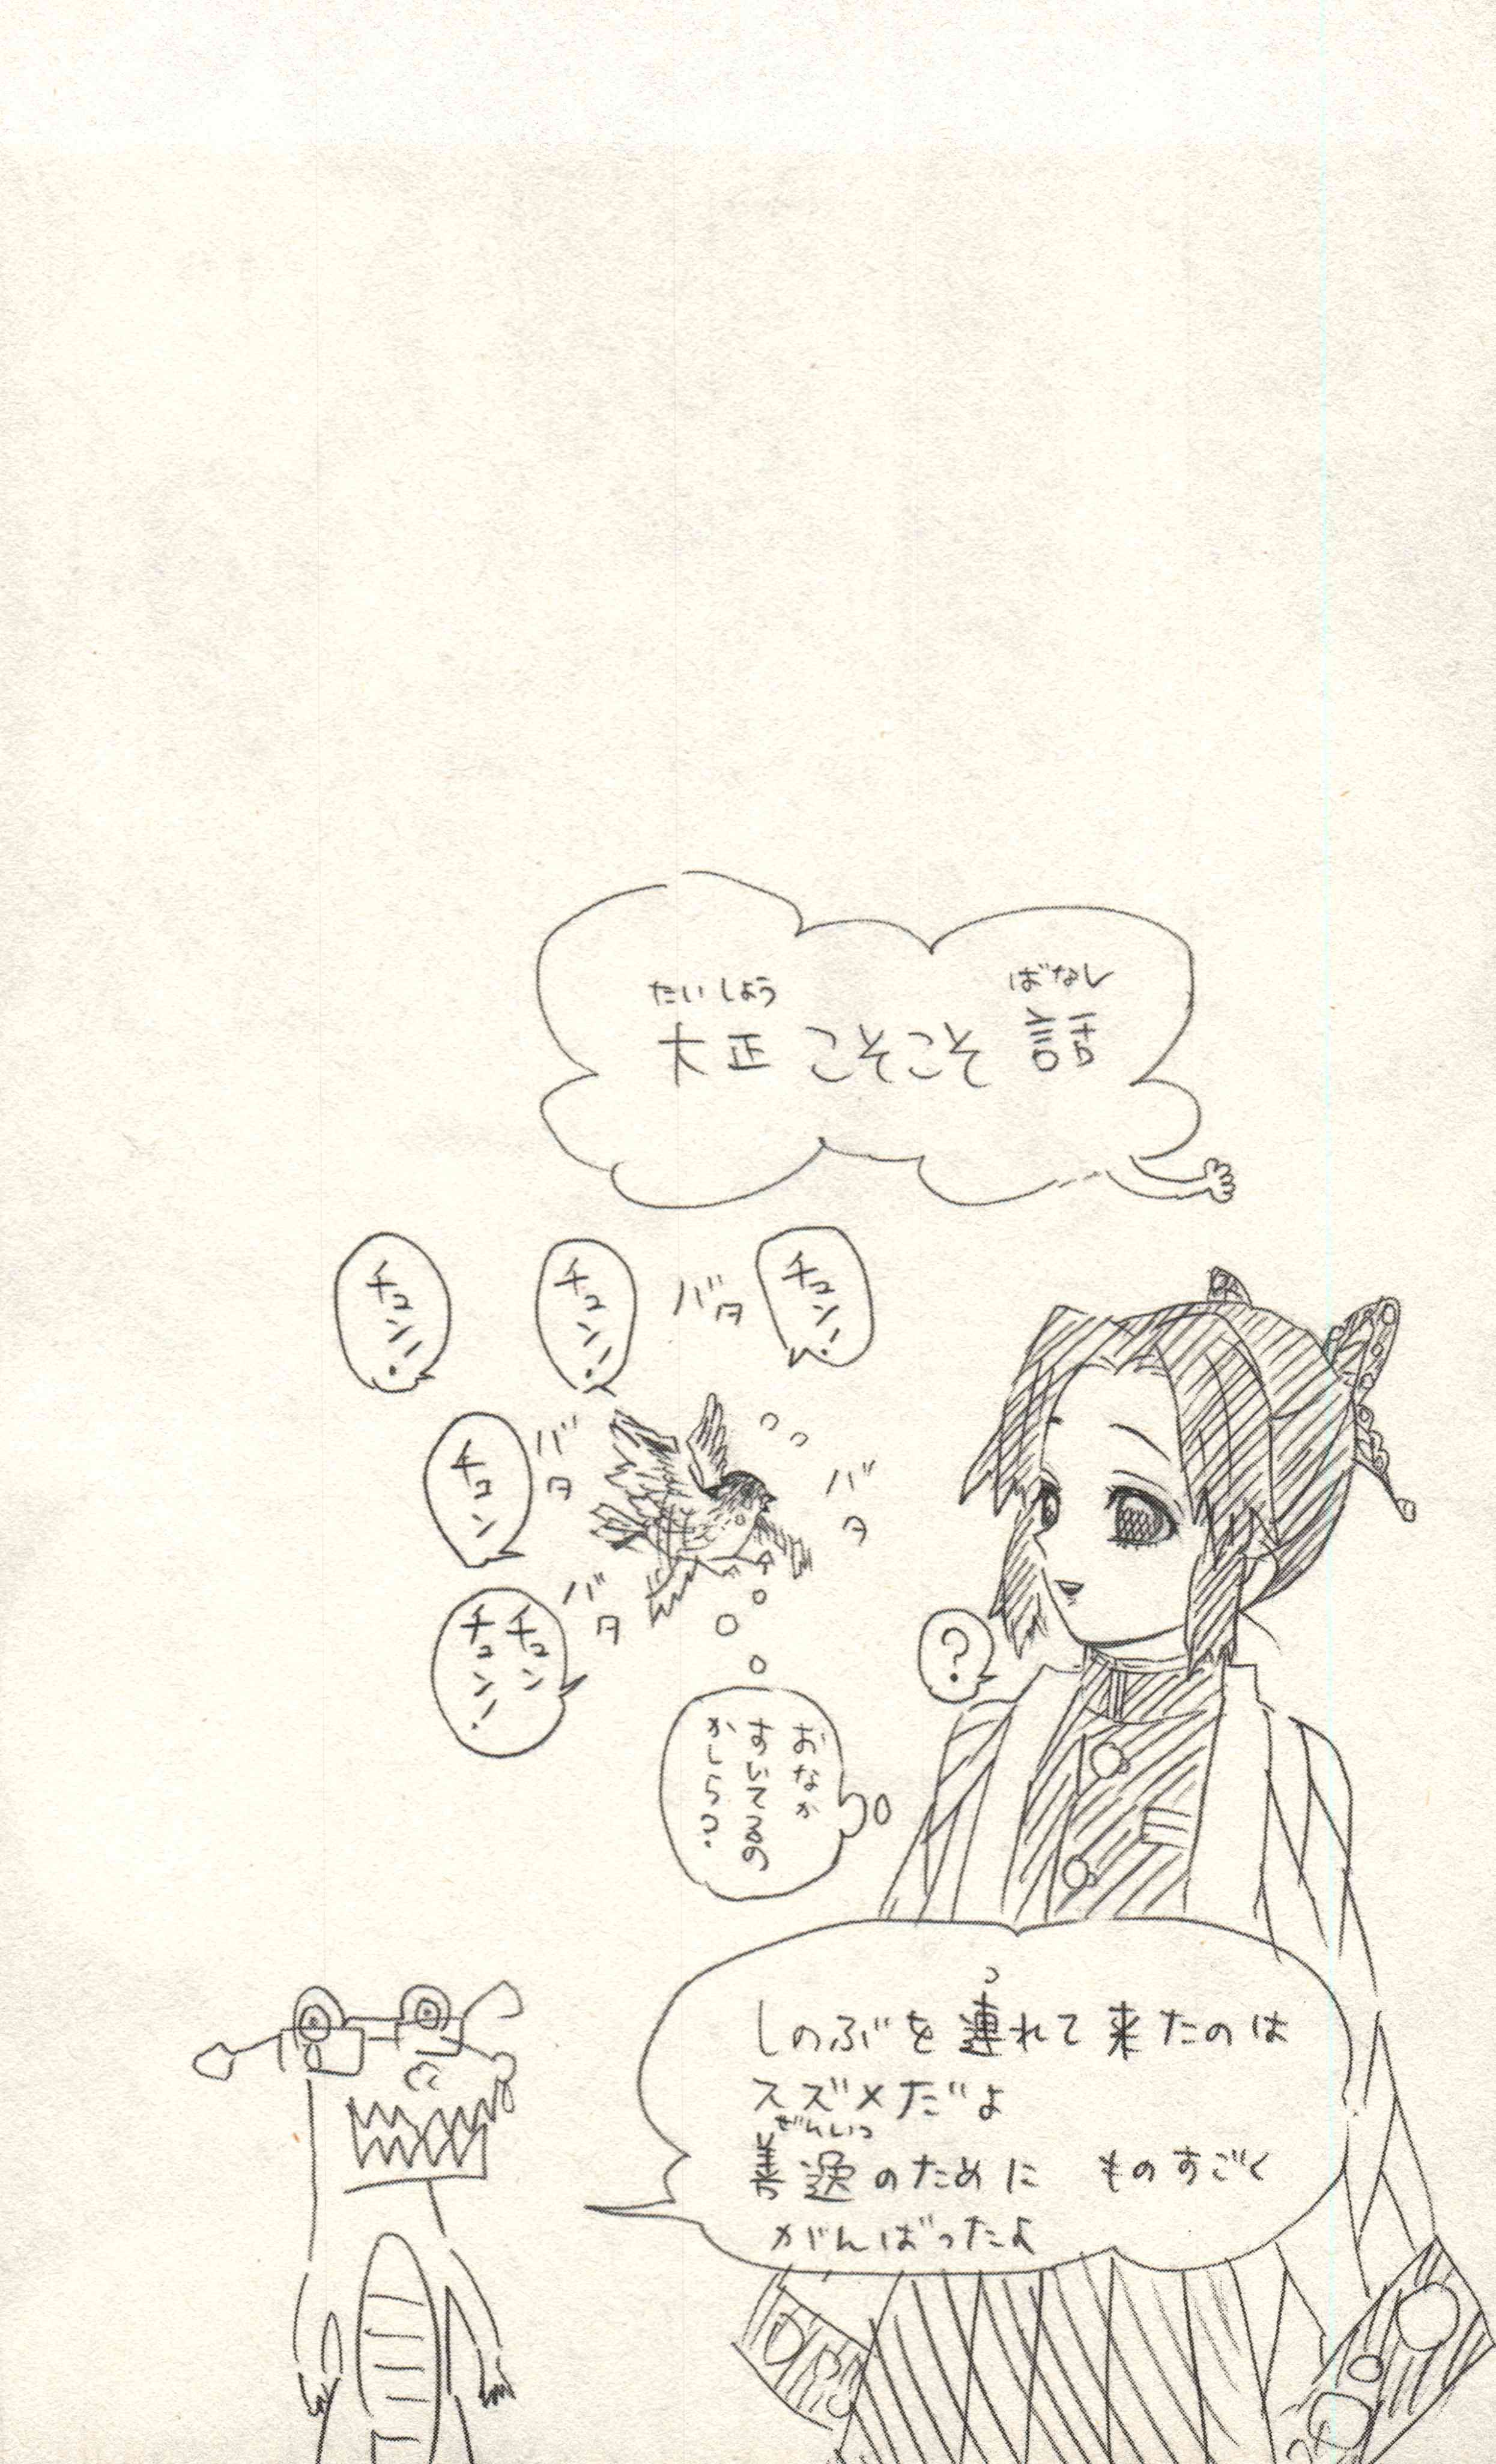 たいしょう ばなし
大正こそこそ話
チュン!
バタ
チュン!
チュン!
バタ
チュン
バタ
バタ
チュン
チュン!
?
おなか
すいてるの
かしら?
つ
しのぶを連れて来たのは
スズメだよ
ぜんいつ
善逸のために ものすごく
がんばったよ